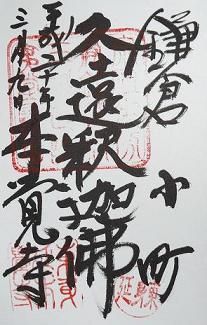 鎌倉 小町
久遠釈迦佛
本覚寺
平成二十年
三月九日
東身延